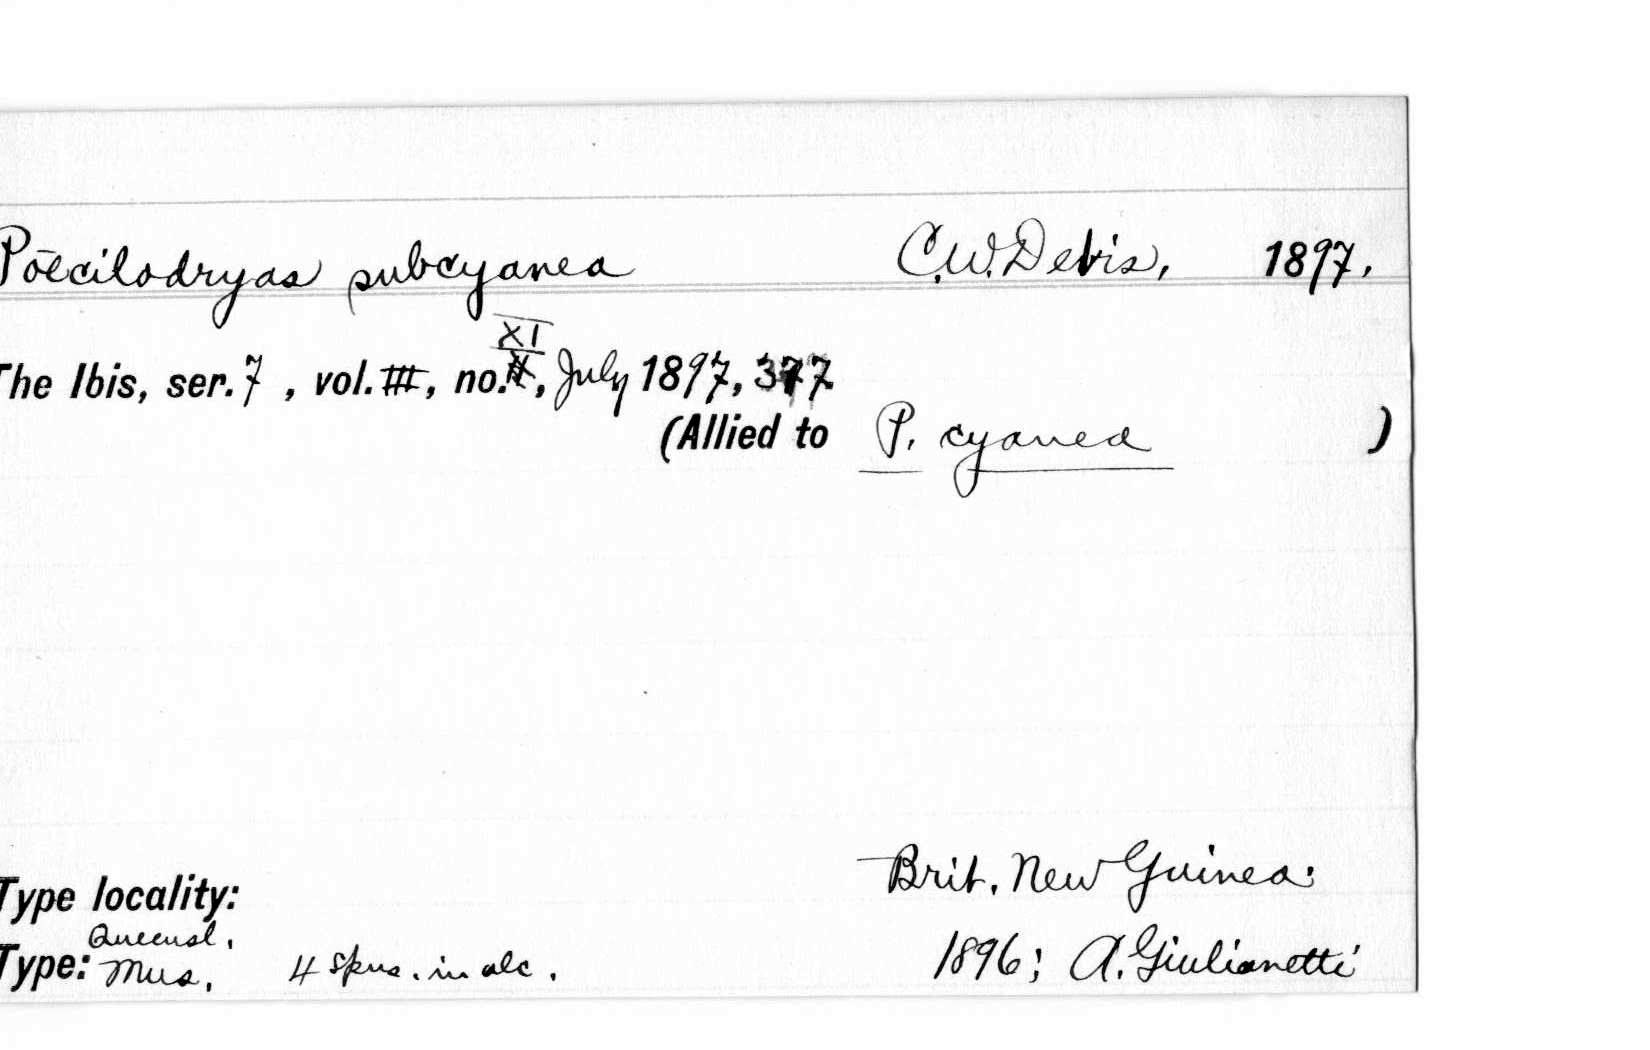 Poecilodryas subcyanea C.W. DeVis, 1897.
XI
The Ibis, ser. 7 , vol. III, no. , July 1897, 377
(Allied to P. cyanea )
Type locality: Brit. New Guinea:
Queensl.
Type: Mus. 4 spns. in alc. 1896; A. Giulianetti